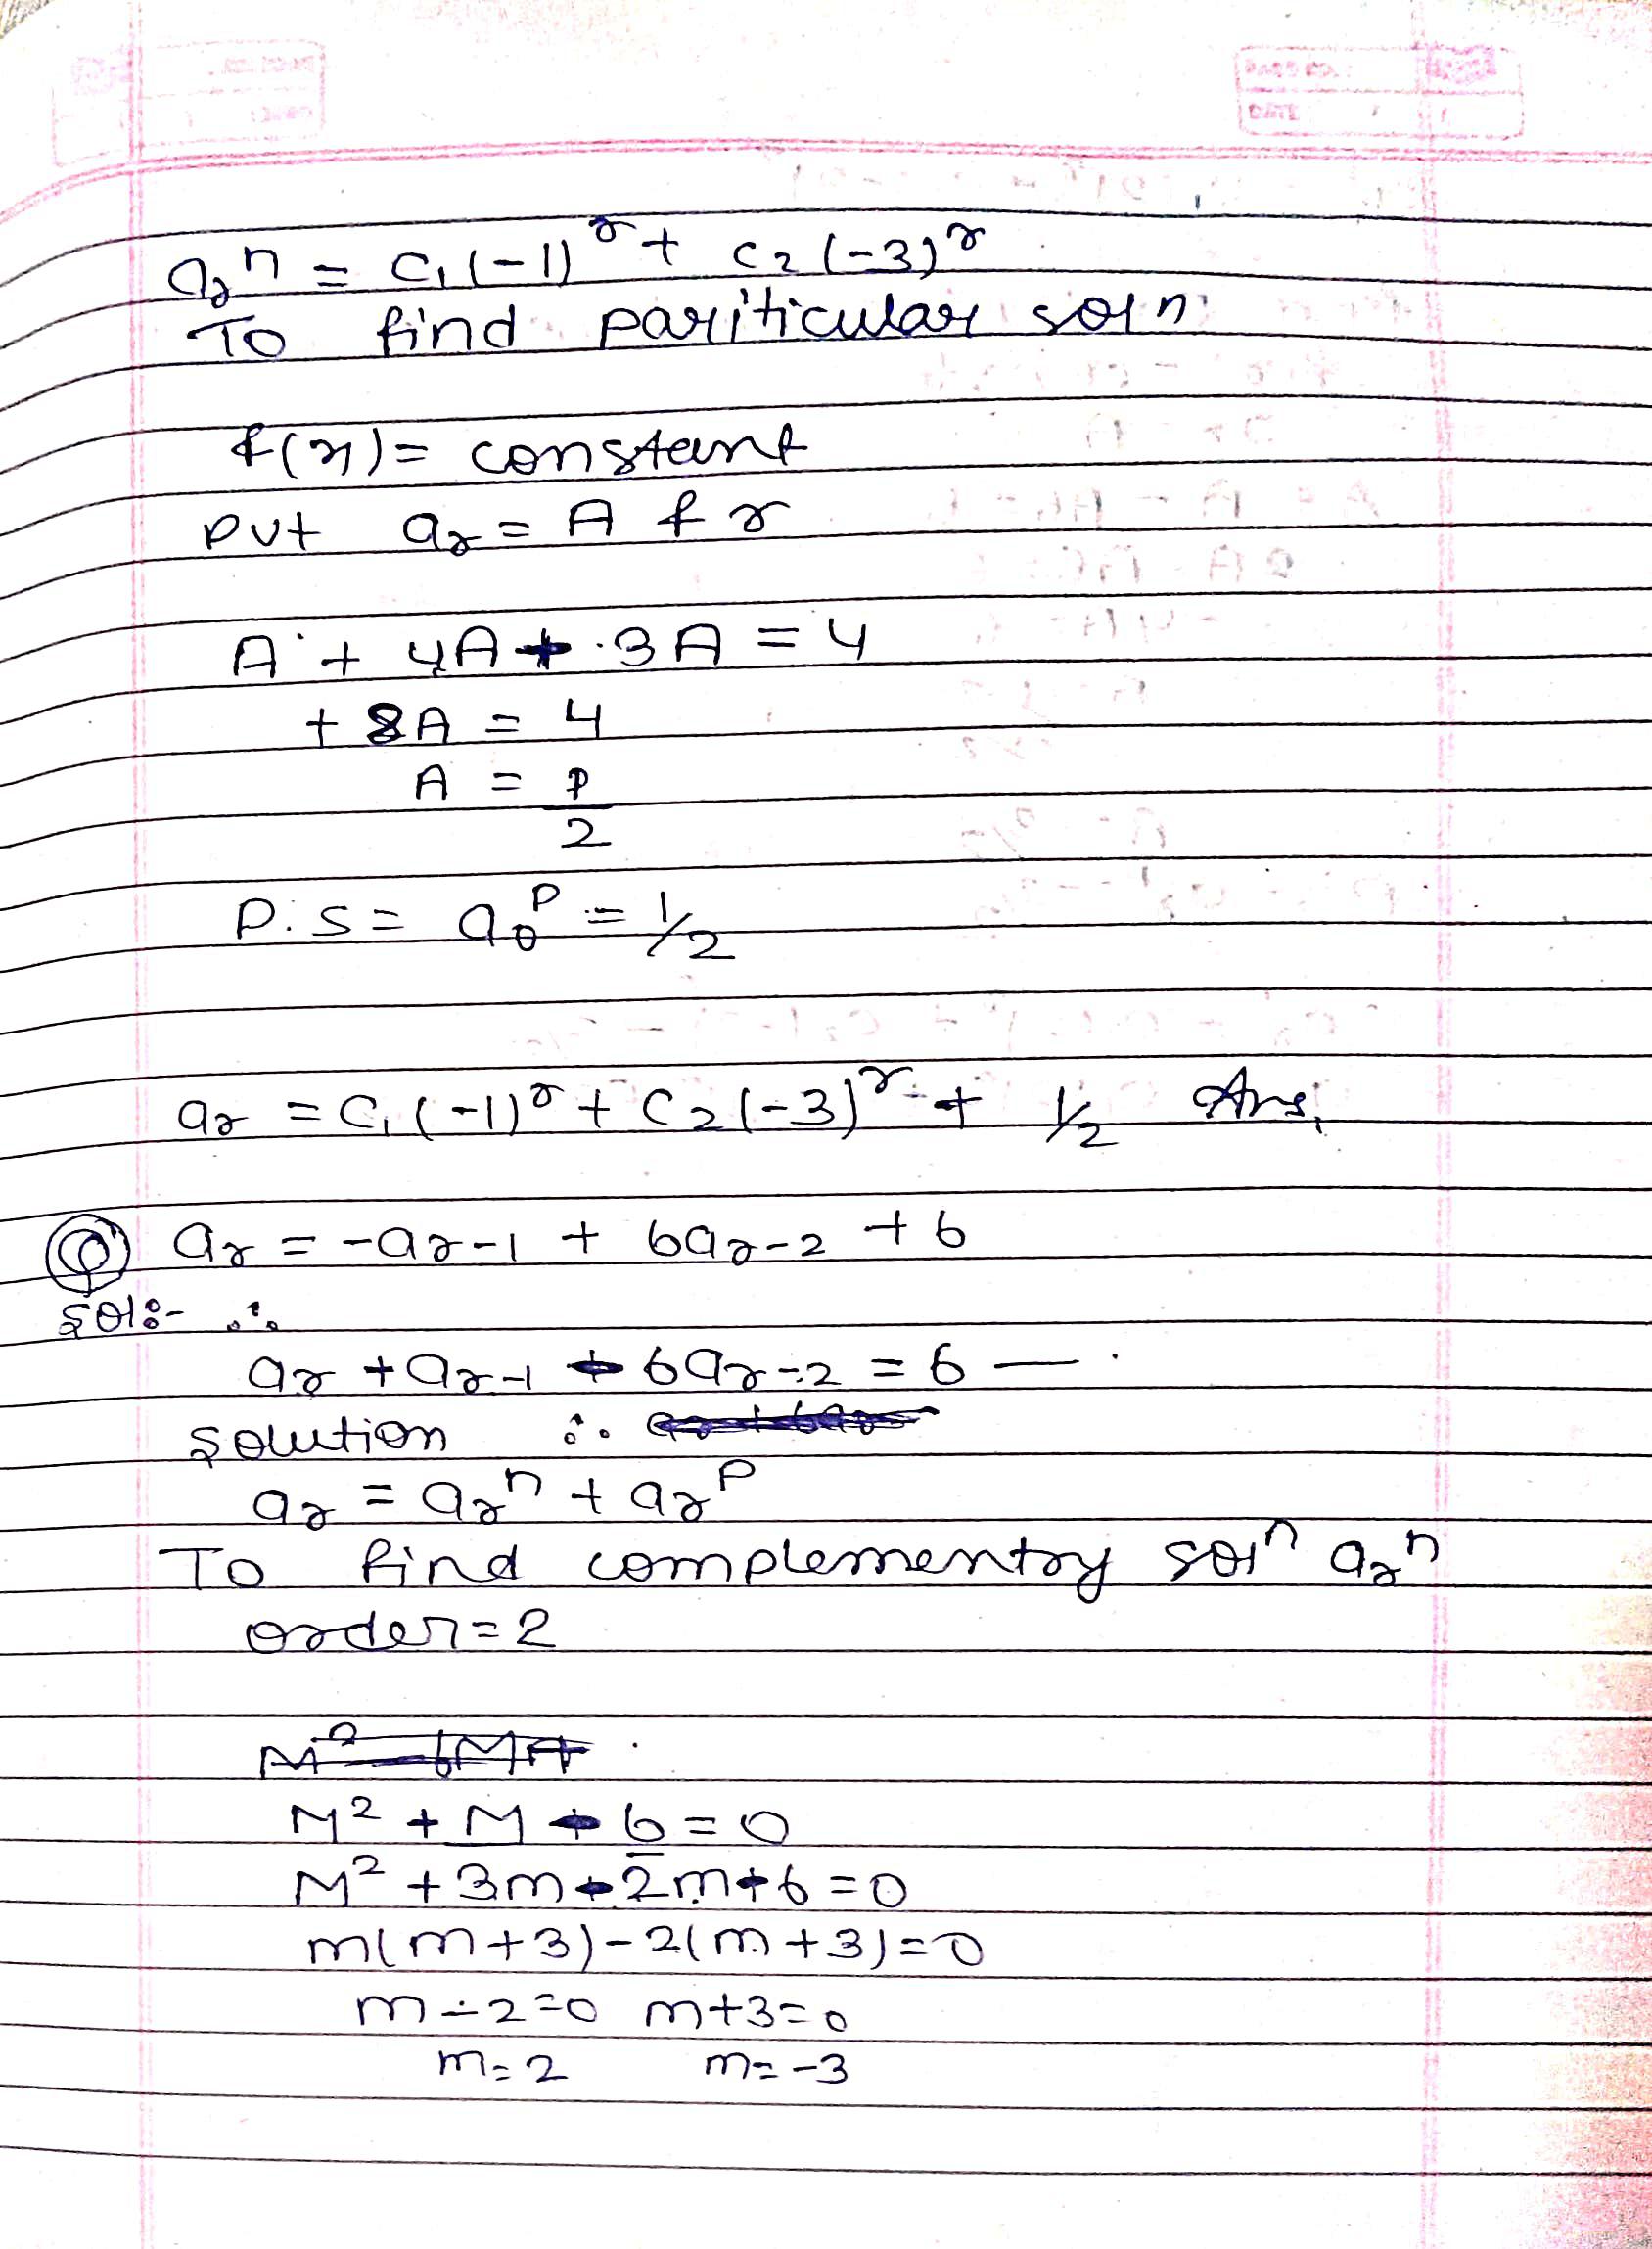 aᵣⁿ = C₁(-1)ʳ + C₂(-3)ʳ
To find pariticular soln
f(r) = constant
put aᵣ = A f r
A + 4A + 3A = 4
+ 8A = 4
A = 1/2
P.S = aᵣᴾ = 1/2
aᵣ = C₁(-1)ʳ + C₂(-3)ʳ + 1/2 Ans,
Q aᵣ = -aᵣ₋₁ + 6aᵣ₋₂ + 6
Sol:- ∴
aᵣ + aᵣ₋₁ - 6aᵣ₋₂ = 6 —
solution ∴
aᵣ = aᵣⁿ + aᵣᴾ
To find complementry solⁿ aᵣⁿ
order = 2
M² + M - 6 = 0
M² + 3m - 2m - 6 = 0
m(m+3) - 2(m+3) = 0
m - 2 = 0 m+3 = 0
m = 2 m = -3